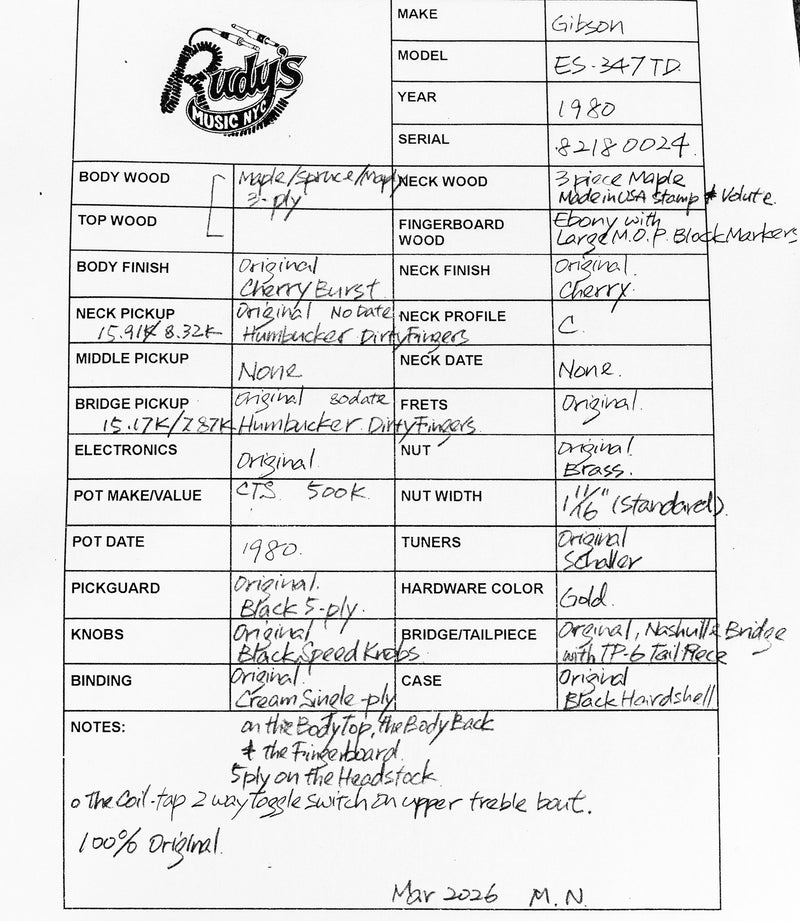 Rudy's
MUSIC NYC
MAKE Gibson
MODEL ES-347TD
YEAR 1980
SERIAL 82180024
BODY WOOD Maple/Spruce/Maple
3-ply
TOP WOOD
NECK WOOD 3 piece Maple
Made in USA Stamp & Volute.
FINGERBOARD WOOD Ebony with
Large M.O.P. Block Markers
BODY FINISH Original
Cherry Burst
NECK FINISH Original.
Cherry.
NECK PICKUP Original No Date
15.91K/8.32K Humbucker Dirty Fingers
NECK PROFILE C.
MIDDLE PICKUP None
NECK DATE None.
BRIDGE PICKUP Original 80 date
15.17K/7.87K Humbucker Dirty Fingers
FRETS Original.
ELECTRONICS Original.
NUT Original.
Brass.
POT MAKE/VALUE CTS. 500K.
NUT WIDTH 1 11/16" (Standard).
POT DATE 1980.
TUNERS Original
Schaller
PICKGUARD Original.
Black 5-ply.
HARDWARE COLOR Gold.
KNOBS Original
Black Speed Knobs
BRIDGE/TAILPIECE Orginal, Nashville Bridge
with TP-6 Tail Piece
BINDING Original.
Cream Single-ply
CASE Original
Black Hardshell
NOTES: on the Body Top, the Body Back
& the Fingerboard.
5ply on the Headstock
o The Coil-tap 2 way toggle switch on upper treble bout.
100% Original.
Mar 2026 M.N.